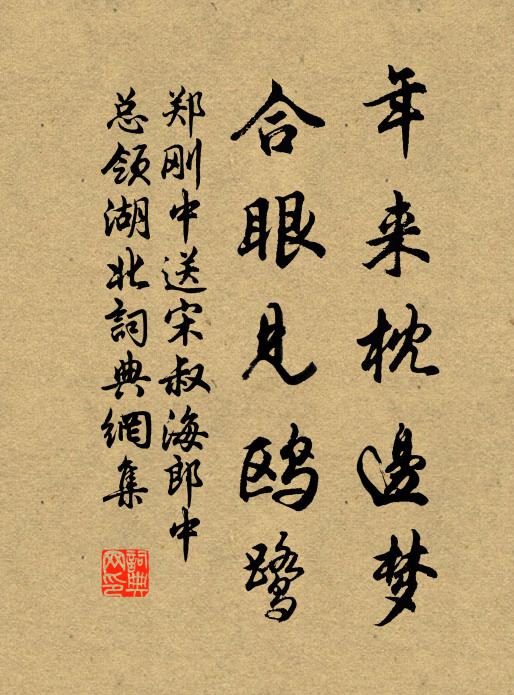 年来枕邊梦
合眼見鸥鹭
郑刚中送宋叔海郎中
总领湖北詞典網集
詞典
网印